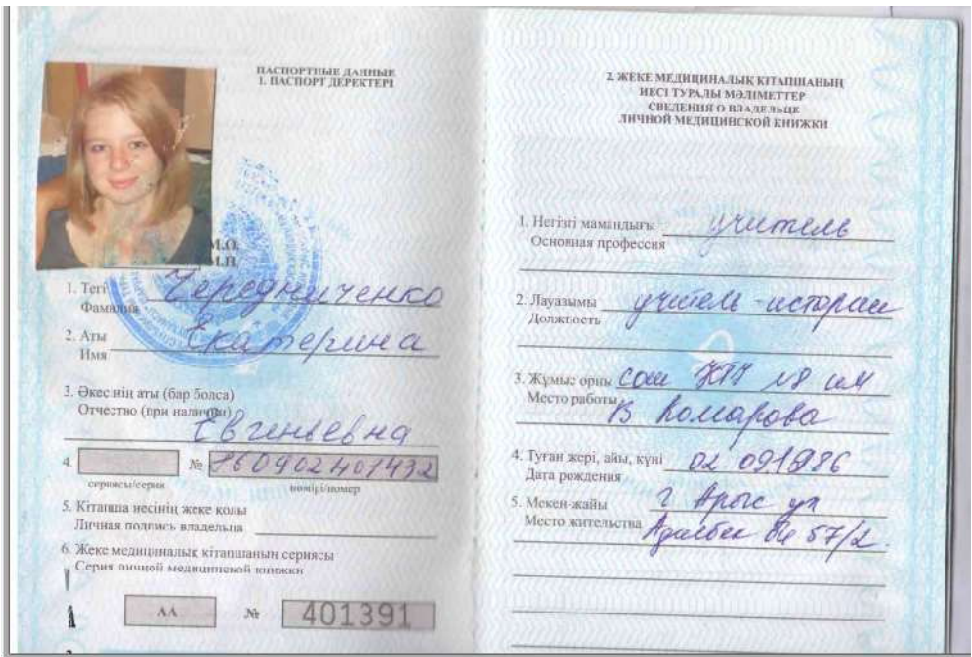 ПАСПОРТНЫЕ ДАННЫЕ
1. ПАСПОРТ ДЕРЕКТЕРІ
М.О.
М.П.
1. Тегі Чередниченко
Фамилия
2. Аты Екатерина
Имя
3. Әкесінің аты (бар болса)
Отчество (при наличии)
Евгеньевна
4. № 860902401432
сериясы/серия нөмірі/номер
5. Кітапша иесінің жеке қолы
Личная подпись владельца
6. Жеке медициналық кітапшаның сериясы
Серия личной медицинской книжки
АА № 401391
2. ЖЕКЕ МЕДИЦИНАЛЫҚ КІТАПШАНЫҢ
ИЕСІ ТУРАЛЫ МӘЛІМЕТТЕР
СВЕДЕНИЯ О ВЛАДЕЛЬЦЕ
ЛИЧНОЙ МЕДИЦИНСКОЙ КНИЖКИ
1. Негізгі мамандығы учитель
Основная профессия
2. Лауазымы учитель - истории
Должность
3. Жұмыс орны сош №8 им
Место работы В Комарова
4. Туған жері, айы, күні 02 091986
Дата рождения
5. Мекен-жайы г Арыс ул
Место жительства 57/2.